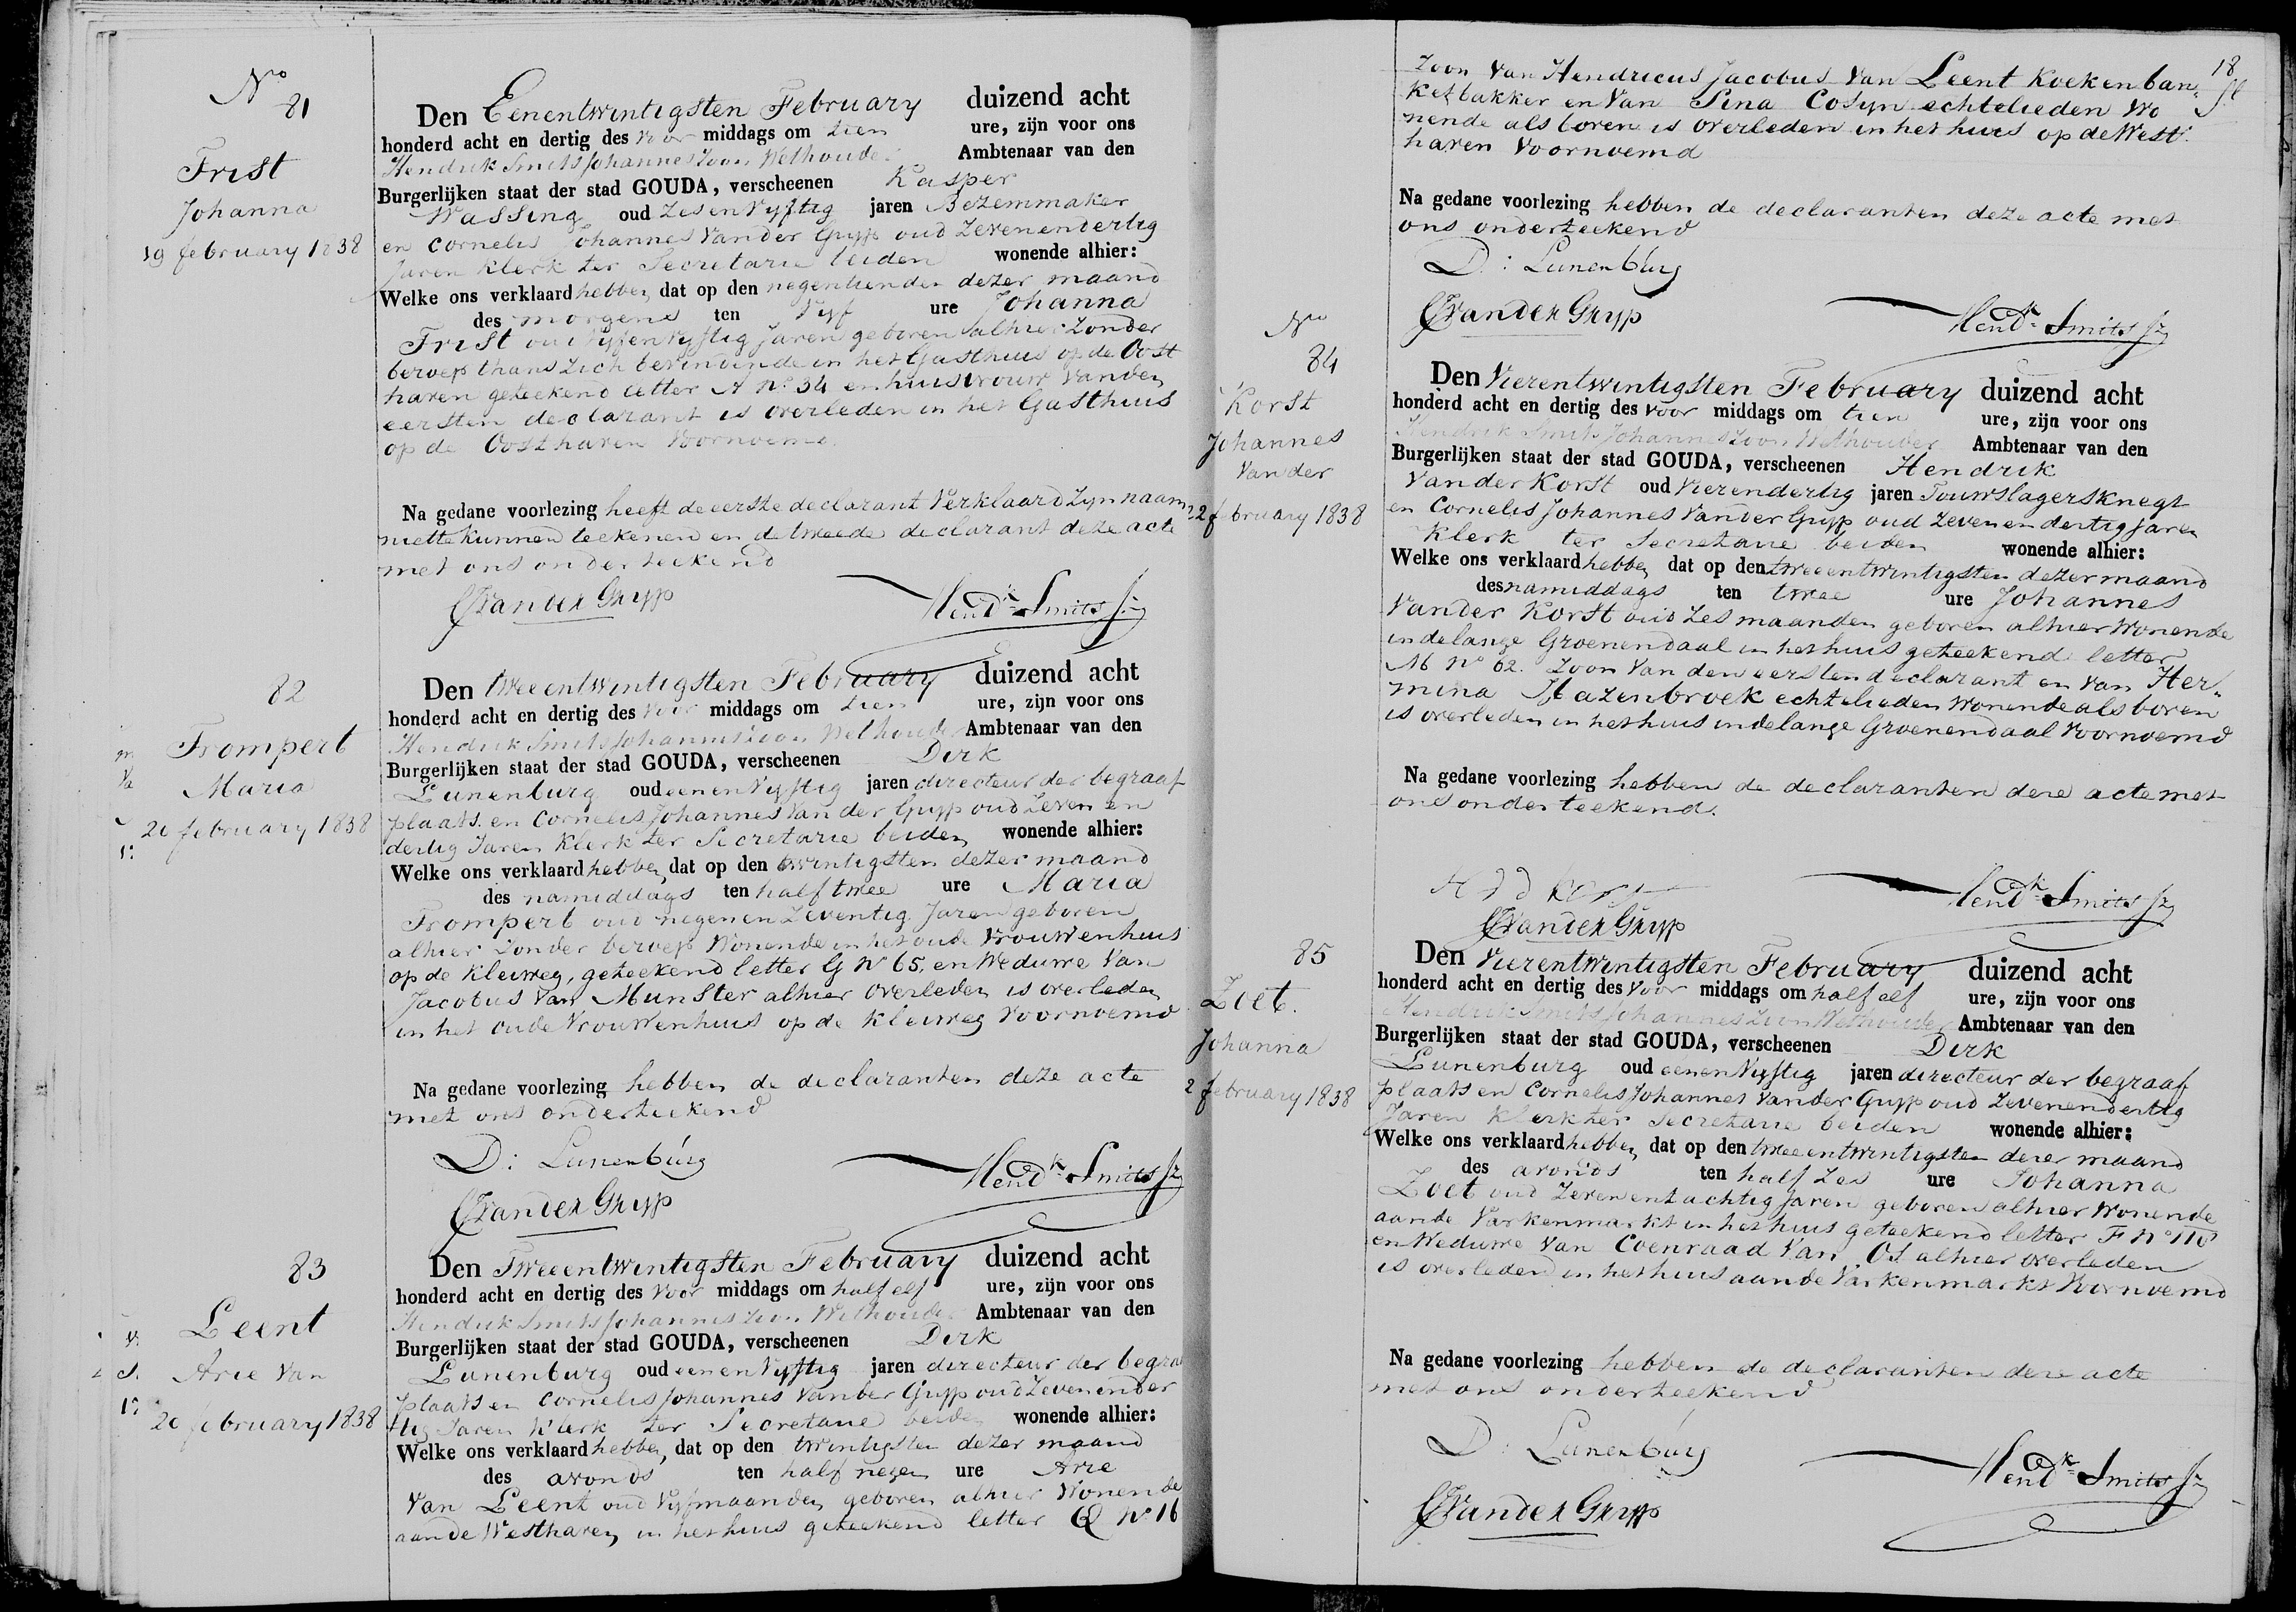 No
81
Frist
Johanna
19 february 1838
Den Eenentwintigsten February duizend acht
honderd acht en dertig des voor middags om tien ure, zijn voor ons
Hendrik Smits Johannes zoon Wethouder Ambtenaar van den
Burgerlijken staat der stad GOUDA, verscheenen Kasper
Wassing oud zesenvyftig jaren Bezemmaker
en Cornelis Johannes Vander Gryp oud Zevenendertig
Jaren Klerk ter Secretarie beiden wonende alhier:
Welke ons verklaard hebben dat op den negentienden dezer maand
des morgens ten Vyf ure Johanna
Frist oud Vyfenvyftig Jaren geboren alhier zonder
beroep thans zich bevindende in het Gasthuis op de Oost
haven geteekend letter A No 34 en huisvrouw vanden
eersten declarant is overleden in het Gasthuis
op de Oosthaven Voornoemd.
Na gedane voorlezing heeft de eerste declarant Verklaard Zyn naam
niet te kunnen teekenen en de tweede declarant deze acte
met ons onderteekend
CJVander Gryp Hendk Smits Jz
82
Frompert
Maria
20 february 1838
Den tweeentwintigsten February duizend acht
honderd acht en dertig des voor middags om tien ure, zijn voor ons
Hendrik Smits Johannes zoon Wethouder Ambtenaar van den
Burgerlijken staat der stad GOUDA, verscheenen Dirk
Lunenburg oud eenenvyftig jaren directeur der begraaf
plaats en Cornelis Johannes Van der Gryp oud Zeven en
dertig Jaren Klerk ter Secretarie beiden wonende alhier:
Welke ons verklaard hebben dat op den twintigsten dezer maand
des namiddags ten half twee ure Maria
Frompert oud negenenzeventig Jaren geboren
alhier zonder beroep Wonende in het oude Vrouwenhuis
op de Kleiweg, geteekend letter G No 65, en Weduwe Van
Jacobus van Munster alhier overleden is overleden
in het oude Vrouwenhuis op de Kleiweg Voornoemd
Na gedane voorlezing hebben de declaranten deze acte
met ons onderteekend
D: Lunenburg Hendk Smits Jz
CJVander Gryp
83
Leent
Arie Van
20 february 1838
Den Tweeentwintigsten February duizend acht
honderd acht en dertig des Voor middags om half elf ure, zijn voor ons
Hendrik Smits Johannes zoon Wethouder Ambtenaar van den
Burgerlijken staat der stad GOUDA, verscheenen Dirk
Lunenburg oud eenenvyftig jaren directeur der begra
plaats en Cornelis Johannes Vander Gryp oud Zevenender
tig Jaren Klerk ter Secretarie beiden wonende alhier:
Welke ons verklaard hebben dat op den twintigsten dezer maand
des avonds ten half negen ure Arie
Van Leent oud Vyf maanden geboren alhier Wonende
aan de Westhaven in het huis geteekend letter Q No 16
18
Zoon Van Hendricus Jacobus Van Leent Koekenban-
ketbakker en Van Sina Cosyn echtelieden Wo
nende als boren is overleden in het huis op de West
haven Voornoemd
Na gedane voorlezing hebben de declaranten deze acte met
ons onderteekend
D: Lunenburg
CJVander Gryp Hendk Smits Jz
No
84
Korst
Johannes
Van der
22 february 1838
Den Vierentwintigsten February duizend acht
honderd acht en dertig des voor middags om tien ure, zijn voor ons
Hendrik Smits Johannes zoon Wethouder Ambtenaar van den
Burgerlijken staat der stad GOUDA, verscheenen Hendrik
Vander Korst oud Vierendertig jaren Touwslagersknegt
en Cornelis Johannes Vander Gryp oud Zeven en dertig Jaren
Klerk ter Secretarie beiden wonende alhier:
Welke ons verklaard hebben dat op den tweeentwintigsten dezer maand
des namiddags ten twee ure Johannes
Vander Korst oud Zes maanden geboren alhier Wonende
in de lange Groenendaal in het huis geteekend letter
M No 62. Zoon Van den eersten declarant en van Her-
mina Hazenbroek echtelieden Wonende als boven
is overleden in het huis in de lange Groenendaal Voornoemd
Na gedane voorlezing hebben de declaranten deze acte met
ons onderteekend.
H V d Korst Hendk Smits Jz
CJVander Gryp
85
Zoet.
Johanna
2 february 1838
Den Vierentwintigsten February duizend acht
honderd acht en dertig des Voor middags om half elf ure, zijn voor ons
Hendrik Smits Johannes Zoon Wethouder Ambtenaar van den
Burgerlijken staat der stad GOUDA, verscheenen Dirk
Lunenburg oud eenenvyftig jaren directeur der begraaf
plaats en Cornelis Johannes Vander Gryp oud Zevenendertig
Jaren Klerk ter Secretarie beiden wonende alhier:
Welke ons verklaard hebben dat op den tweeentwintigsten dezer maand
des avonds ten half zes ure Johanna
Zoet oud Zevenentachtig Jaren geboren alhier Wonende
aan de Varkenmarkt in het huis geteekend letter F No 110
en Weduwe Van Coenraad Van Os alhier overleden
is overleden in het huis aan de Varkenmarkt Voornoemd
Na gedane voorlezing hebben de declaranten deze acte
met ons onderteekend
D: Lunenburg Hendk Smits Jz
CJVander Gryp